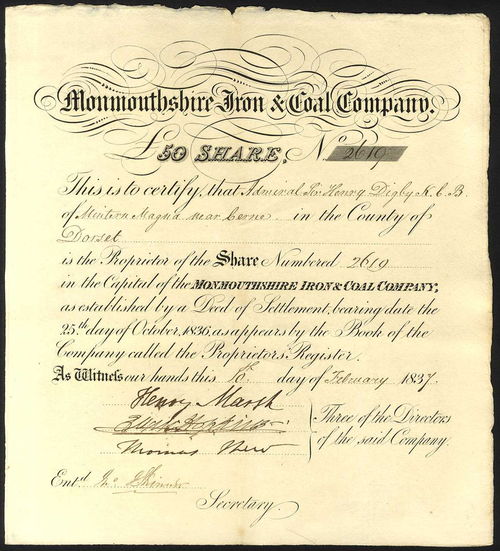 Monmouthshire Iron & Coal Company.
£50 SHARE, No. 2619
This is to certify, that Admiral Sir Henry Digby K.C.B.
of Mintern Magna near Cerne in the County of
Dorset
is the Proprietor of the Share Numbered 2619
in the Capital of the MONMOUTHSHIRE IRON & COAL COMPANY,
as established by a Deed of Settlement, bearing date the
25th day of October, 1836, as appears by the Book of the
Company called the Proprietors Register.
As Witness our hands this day of February 1837.
Henry Marsh
Three of the Directors
of the said Company.
Thomas
Entd.
Secretary.